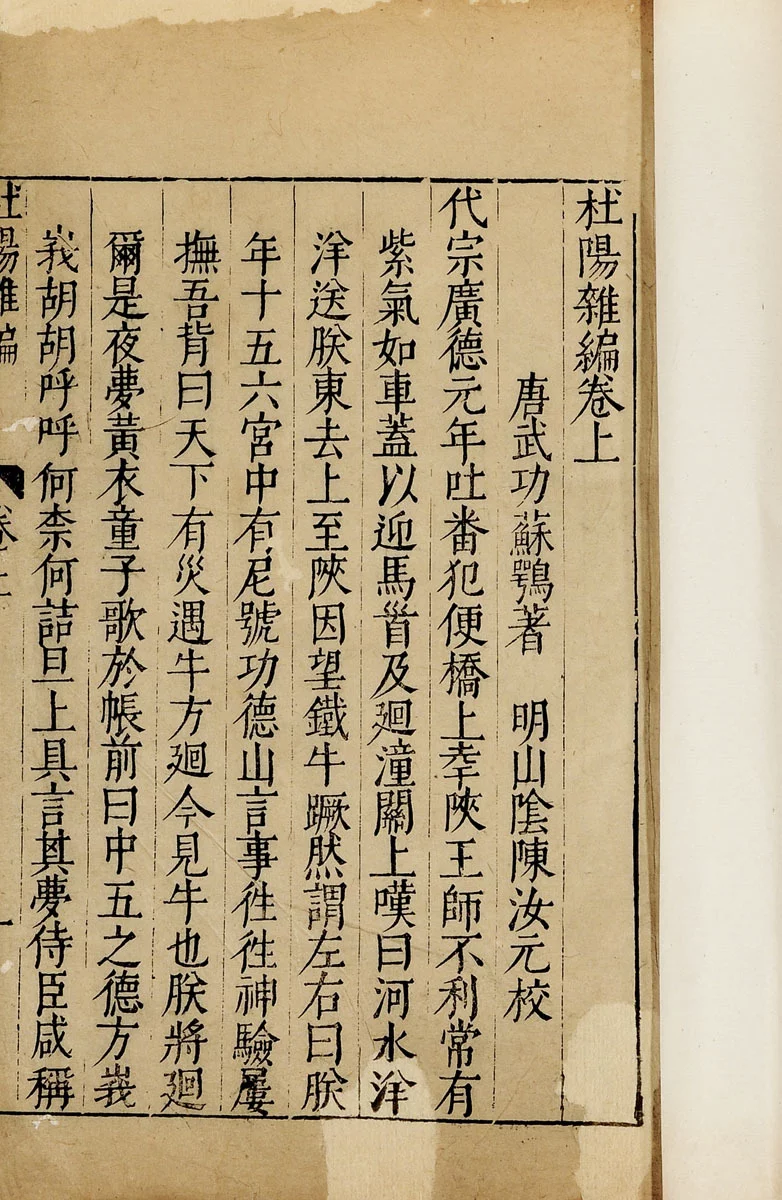 杜陽雜編卷上
唐武功蘇鶚著　明山陰陳汝元校
代宗廣德元年吐番犯便橋上幸陜王師不利常有
紫氣如車蓋以迎馬首及廻潼關上嘆曰河水洋
洋送朕東去上至陜因望鐵牛蹶然謂左右曰朕
年十五六宮中有尼號功德山言事徃徃神驗屢
撫吾背曰天下有災遇牛方廻今見牛也朕將廻
爾是夜夢黃衣童子歌於帳前曰中五之德方峩
峩胡胡呼呼何柰何詰旦上具言其夢侍臣咸稱
杜陽雜編
卷上
一